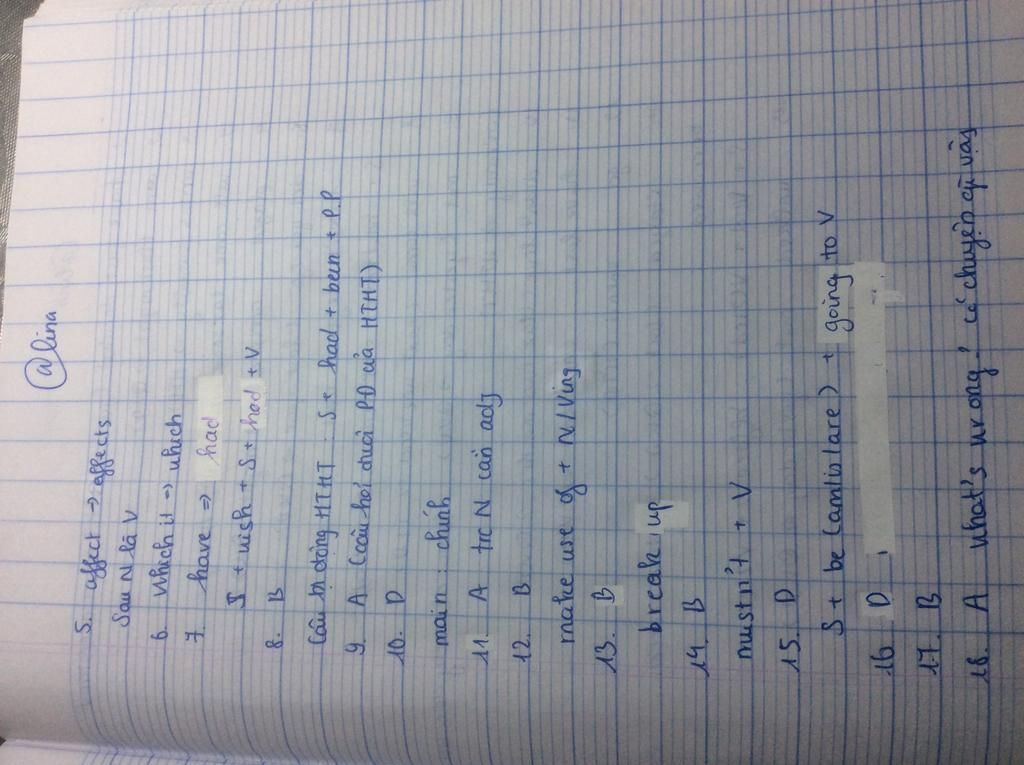 @lina
5. affect → affects
Sau N là V
6. Which it → which
7. have => had
S + wish + S + had + V
8. B
Câu bị động HTHT : S + had + been + P.P
9. A (câu hỏi đuôi PĐ của HTHT)
10. D
main : chính
11. A trc N cần adj
12. B
make use of + N/Ving
13. B
break up
14. B
mustn't + V
15. D
S + be (am/is/are) + going to V
16 D
17. B
18. A What's wrong? có chuyện gì vậy